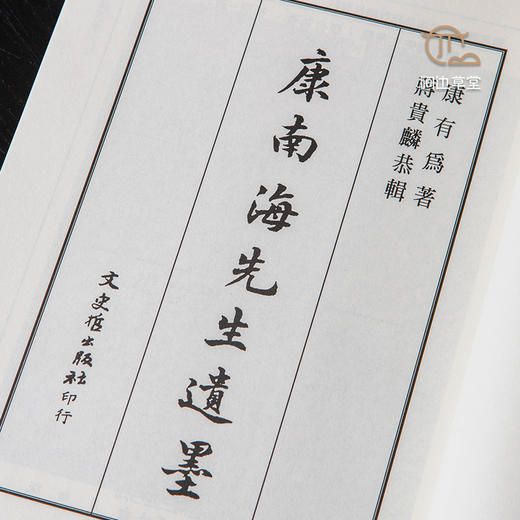 康有為著
蔣貴麟恭輯
康南海先生遺墨
文史哲出版社印行